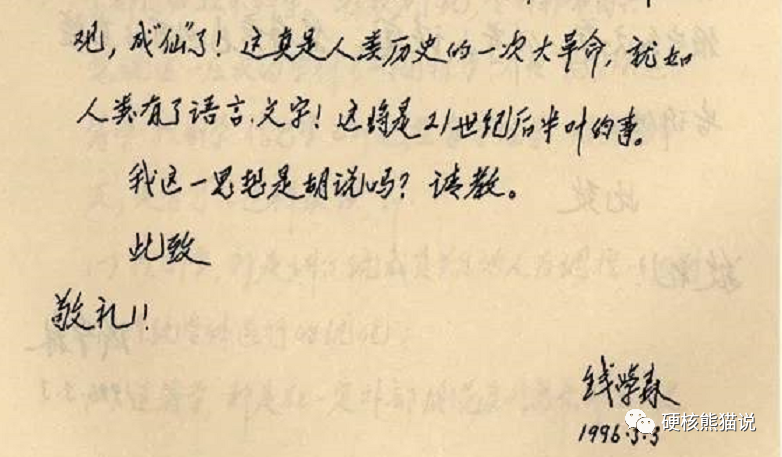 观，成“仙”了！这真是人类历史的一次大革命，就如
人类有了语言、文字！这将是21世纪后半叶的事。
我这一思想是胡说吗？请教。
此致
敬礼！
钱学森
1996.3.3
硬核熊猫说